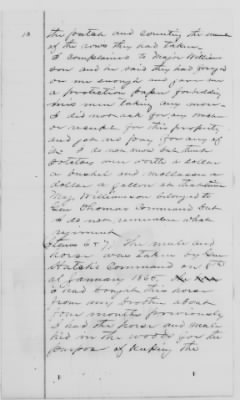 13
the potatoe and counting the number
of the rows they had taken.
I complained to Major William
son and he said they had foraged
on me enough and gave me
a protection paper forbidding
his men taking any more.
I did not ask for any voucher
or receipt for this property
and got no pay for any of
it. I do not know but think
potatoes were worth a dollar
a bushel and mollasses a
dollar a gallon at that time
Maj. Williamson belonged to
Gen Thomas Command but
I do not remember which
regiment
Items 6 & 7. The mule and
horse was taken by Gen
Hatchs Command on 8th
of January 1865.
I had bought this horse
from my brother about
four months previously
I had the horse and mule
hid in the woods for the
purpose of keeping the